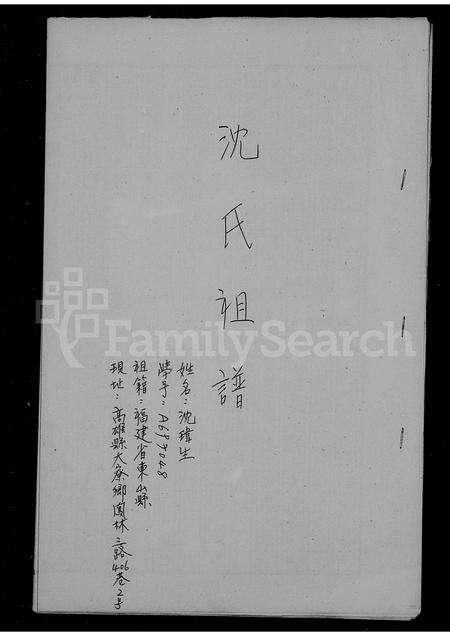 沈氏祖譜
姓名:沈瑋生
學号:A687048
祖籍:福建省東山縣
現址:高雄縣大寮鄉鳳林三路406巷2号
FamilySearch